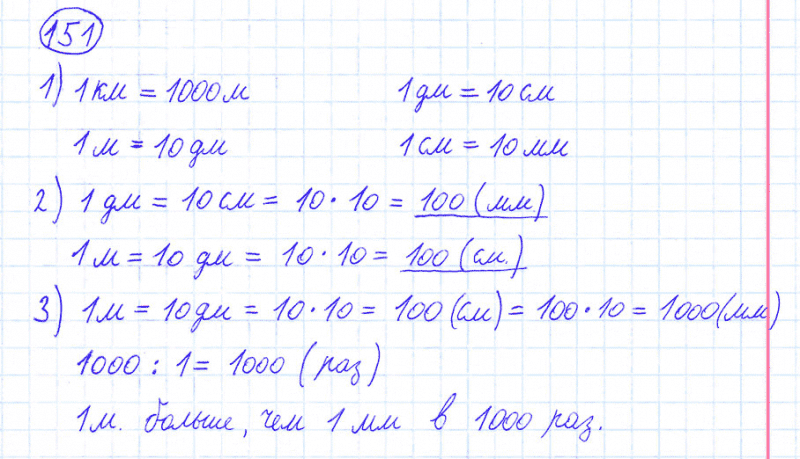 151
1) 1 км = 1000 м 1 дм = 10 см
1 м = 10 дм 1 см = 10 мм
2) 1 дм = 10 см = 10 · 10 = 100 (мм)
1 м = 10 дм = 10 · 10 = 100 (см.)
3) 1 м = 10 дм = 10 · 10 = 100 (см) = 100 · 10 = 1000 (мм)
1000 : 1 = 1000 (раз)
1 м. больше, чем 1 мм в 1000 раз.